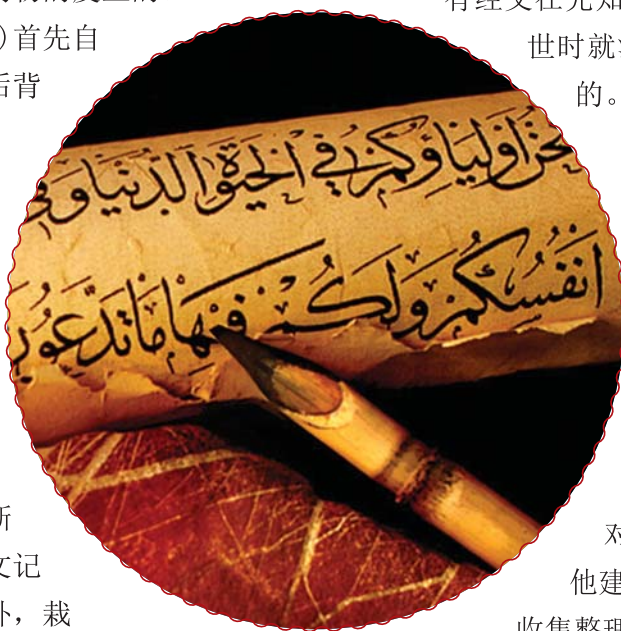 的皮上的
)首先自
后背
有经文在先知
世时就
的。
نحن اولياؤكم في الحيوة الدنيا وفي
انفسكم ولكم فيها ما تدعون
文记
，栽
对
他建
收集整理